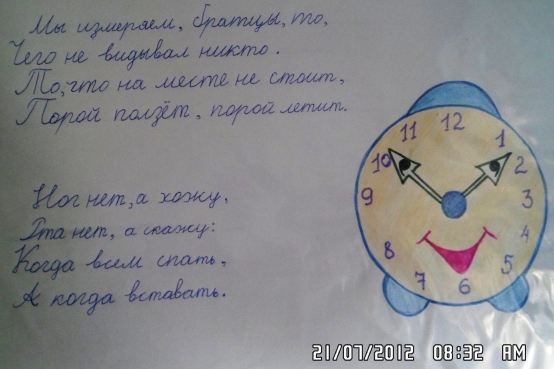 Мы измеряем, братцы, то,
Чего не видывал никто.
То, что на месте не стоит,
Порой ползёт, порой летит.
Ног нет, а хожу,
Рта нет, а скажу:
Когда всем спать,
А когда вставать.
12
11
1
10
2
9
3
8
4
7
5
6
21/07/2012 08:32 AM